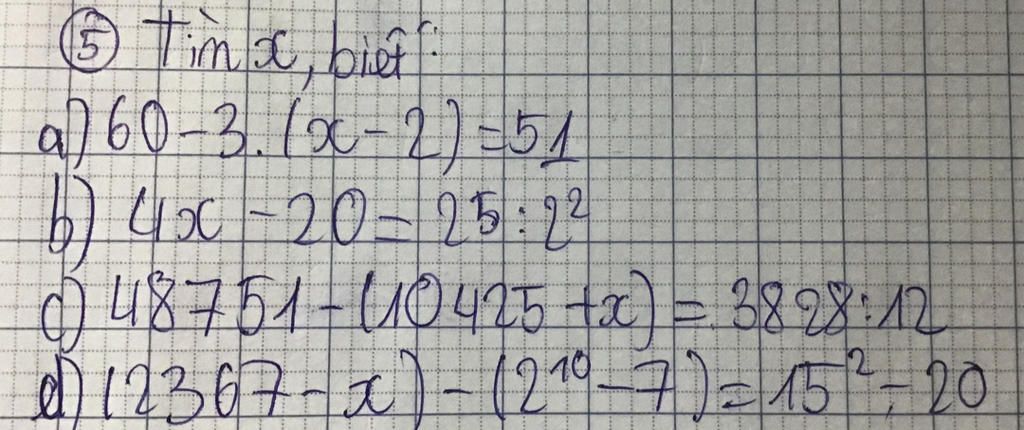 ⑤ Tìm x, biết:
a) 60 - 3.(x - 2) = 51
b) 4x - 20 = 25 : 2²
c) 48751 - (10425 + x) = 3828 : 12
d) (2367 - x) - (2¹⁰ - 7) = 15² - 20